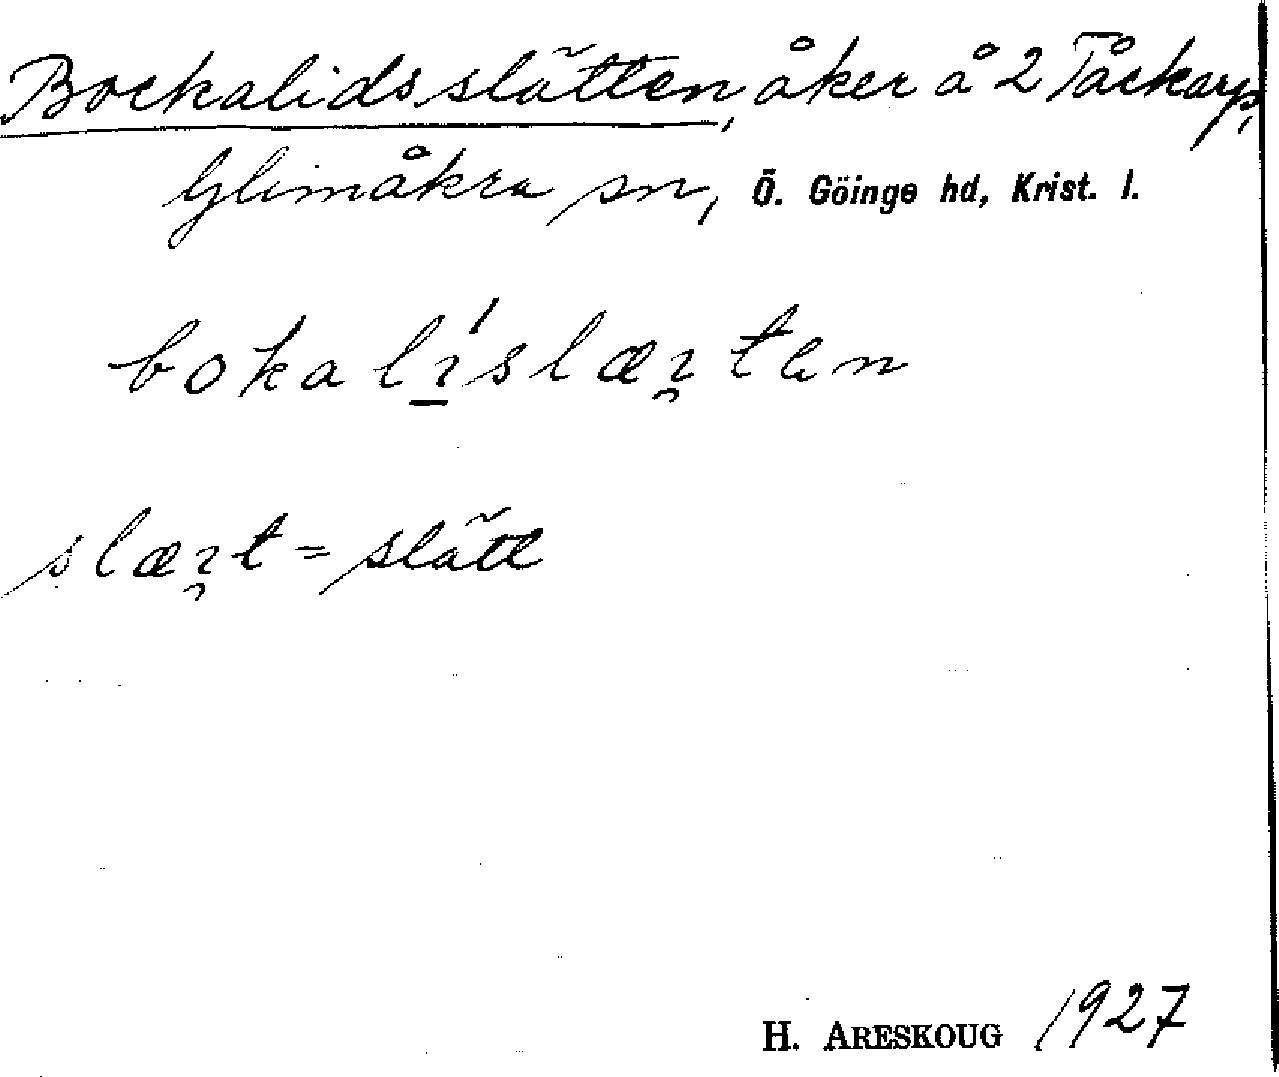 Bockalidsslätten, åker å 2 Tåckarp,
Glimåkra sn, Ö. Göinge hd, Krist. l.
bokalı́slæı̯tɘn
slæı̯t = slätt
H. ARESKOUG 1927